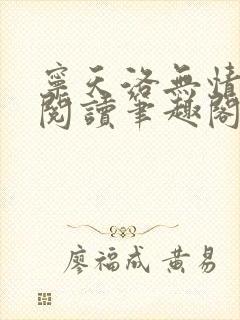 寧天洛無情
閱讀筆趣閣
廖福成 黃易